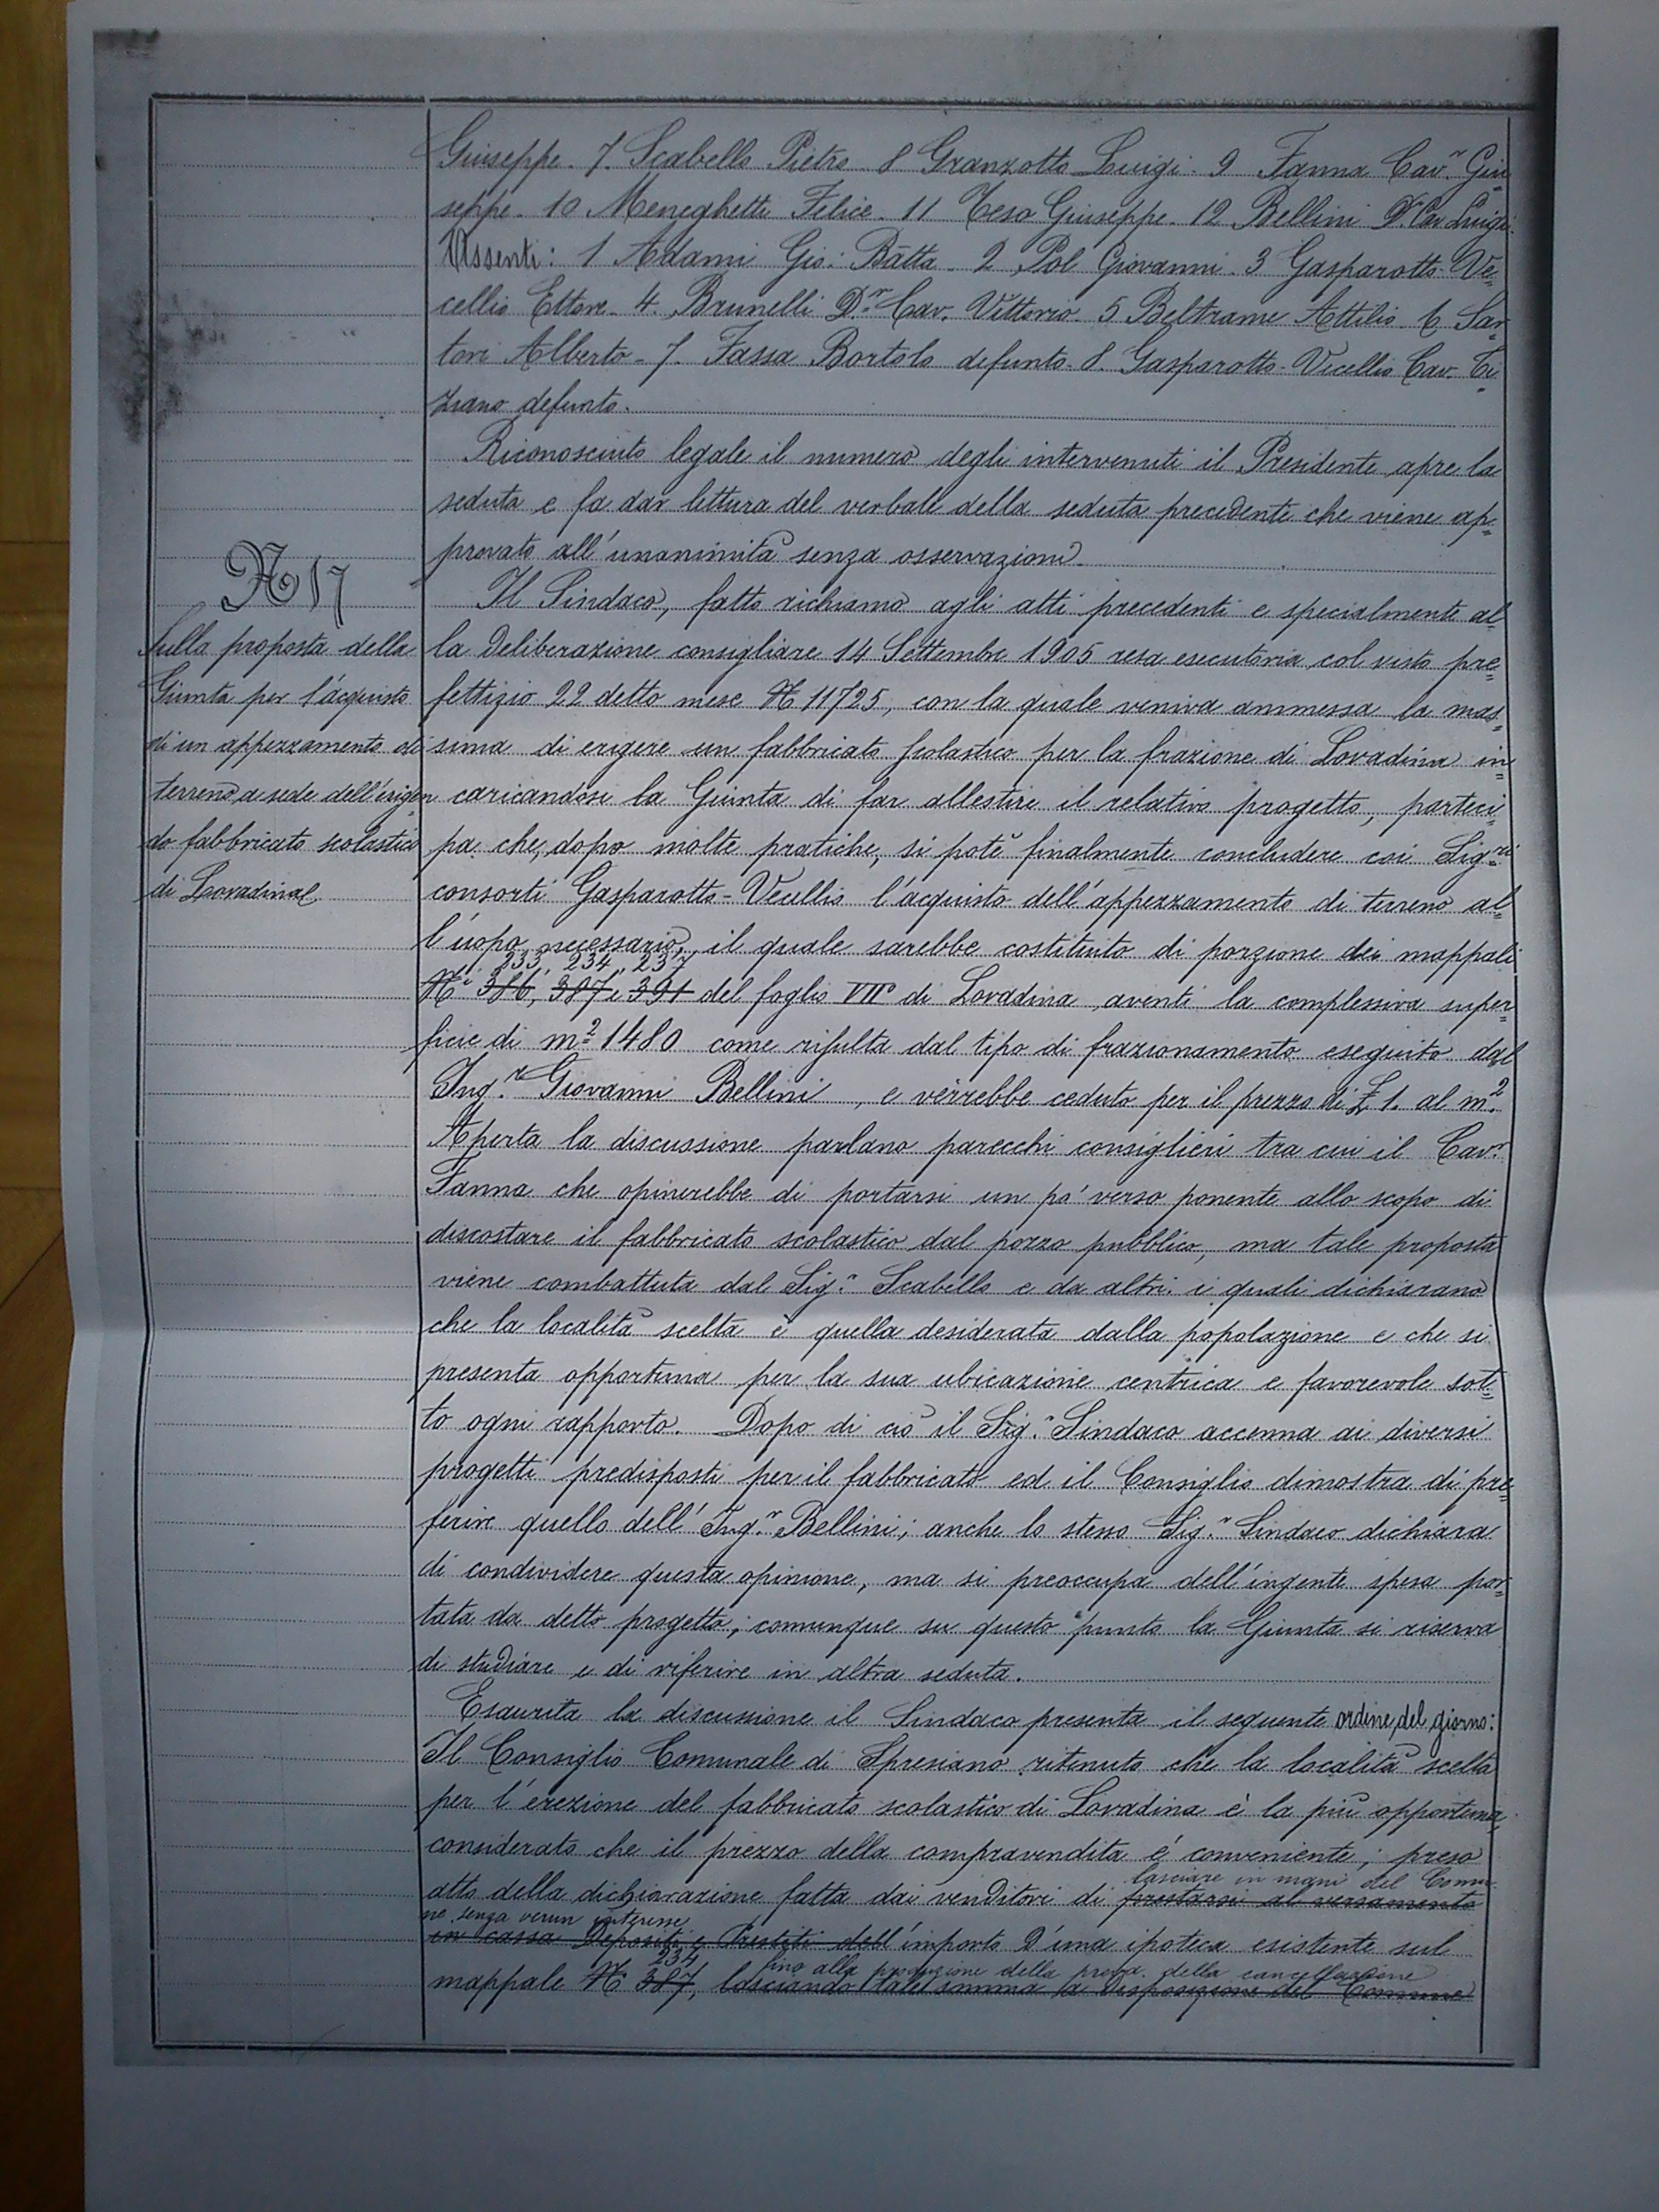 Giuseppe. 7. Scabello Pietro. 8 Granzotto Luigi. 9 Fanna Cav.r Giu=
seppe. 10 Meneghetti Felice. 11 Teso Giuseppe. 12 Bellini D.r Cav. Luigi.
Assenti: 1 Adami Gio: Batta. 2 Pol Giovanni. 3 Gasparotto-Ve=
cellio Ettore. 4. Brunelli D.r Cav. Vittorio. 5 Beltrame Attilio. 6 Sar=
tori Alberto. 7. Fassa Bortolo defunto. 8. Gasparotto-Vecellio Cav. Ti=
ziano defunto.
Riconosciuto legale il numero degli intervenuti il Presidente apre la
seduta e fa dar lettura del verbale della seduta precedente che viene ap=
provato all'unanimità senza osservazioni.
N 17
Sulla proposta della
Giunta per l'acquisto
di un appezzamento di
terreno a sede dell'erigen
do fabbricato scolastico
di Lovadina
Il Sindaco, fatto richiamo agli atti precedenti e specialmente al=
la Deliberazione consigliare 14 Settembre 1905 resa esecutoria col visto pre=
fettizio 22 detto mese N 11725, con la quale veniva ammessa la mas=
sima di erigere un fabbricato scolastico per la frazione di Lovadina in=
caricandosi la Giunta di far allestire il relativo progetto, parteci=
pa che, dopo molte pratiche, si potè finalmente concludere coi Sig.ri
consorti Gasparotto-Vecellio l'acquisto dell'appezzamento di terreno al=
l'uopo necessario, il quale sarebbe costituito di porzione dei mappali
233, 234, 237
N.i 386, 387 e 391 del foglio VII° di Lovadina aventi la complessiva super=
ficie di m.2 1480 come risulta dal tipo di frazionamento eseguito dal
Ing.r Giovanni Bellini, e verrebbe ceduto per il prezzo di £ 1. al m.2
Aperta la discussione parlano parecchi consiglieri tra cui il Cav.r
Fanna che opinerebbe di portarsi un po' verso ponente allo scopo di
discostare il fabbricato scolastico dal pozzo pubblico, ma tale proposta
viene combattuta dal Sig.r Scabello e da altri i quali dichiarano
che la località scelta è quella desiderata dalla popolazione e che si
presenta opportuna per la sua ubicazione centrica e favorevole sot=
to ogni rapporto. Dopo di ciò il Sig.r Sindaco accenna ai diversi
progetti predisposti per il fabbricato ed il Consiglio dimostra di pre=
ferire quello dell'Ing.r Bellini; anche lo stesso Sig.r Sindaco dichiara
di condividere questa opinione, ma si preoccupa dell'ingente spesa por=
tata da detto progetto; comunque su questo punto la Giunta si riserva
di studiare e di riferire in altra seduta.
Esaurita la discussione il Sindaco presenta il seguente ordine del giorno:
Il Consiglio Comunale di Spresiano ritenuto che la località scelta
per l'erezione del fabbricato scolastico di Lovadina è la più opportuna;
considerato che il prezzo della compravendita è conveniente; preso
lasciare in mani del Comu=
atto della dichiarazione fatta dai venditori di prestarsi al versamento
ne senza verun interesse
in cassa Depositi e Prestiti dell'importo d'una ipoteca esistente sul
234 fino alla produzione della prova della cancellazione
mappale N 387, lasciando tale somma a disposizione del Comune